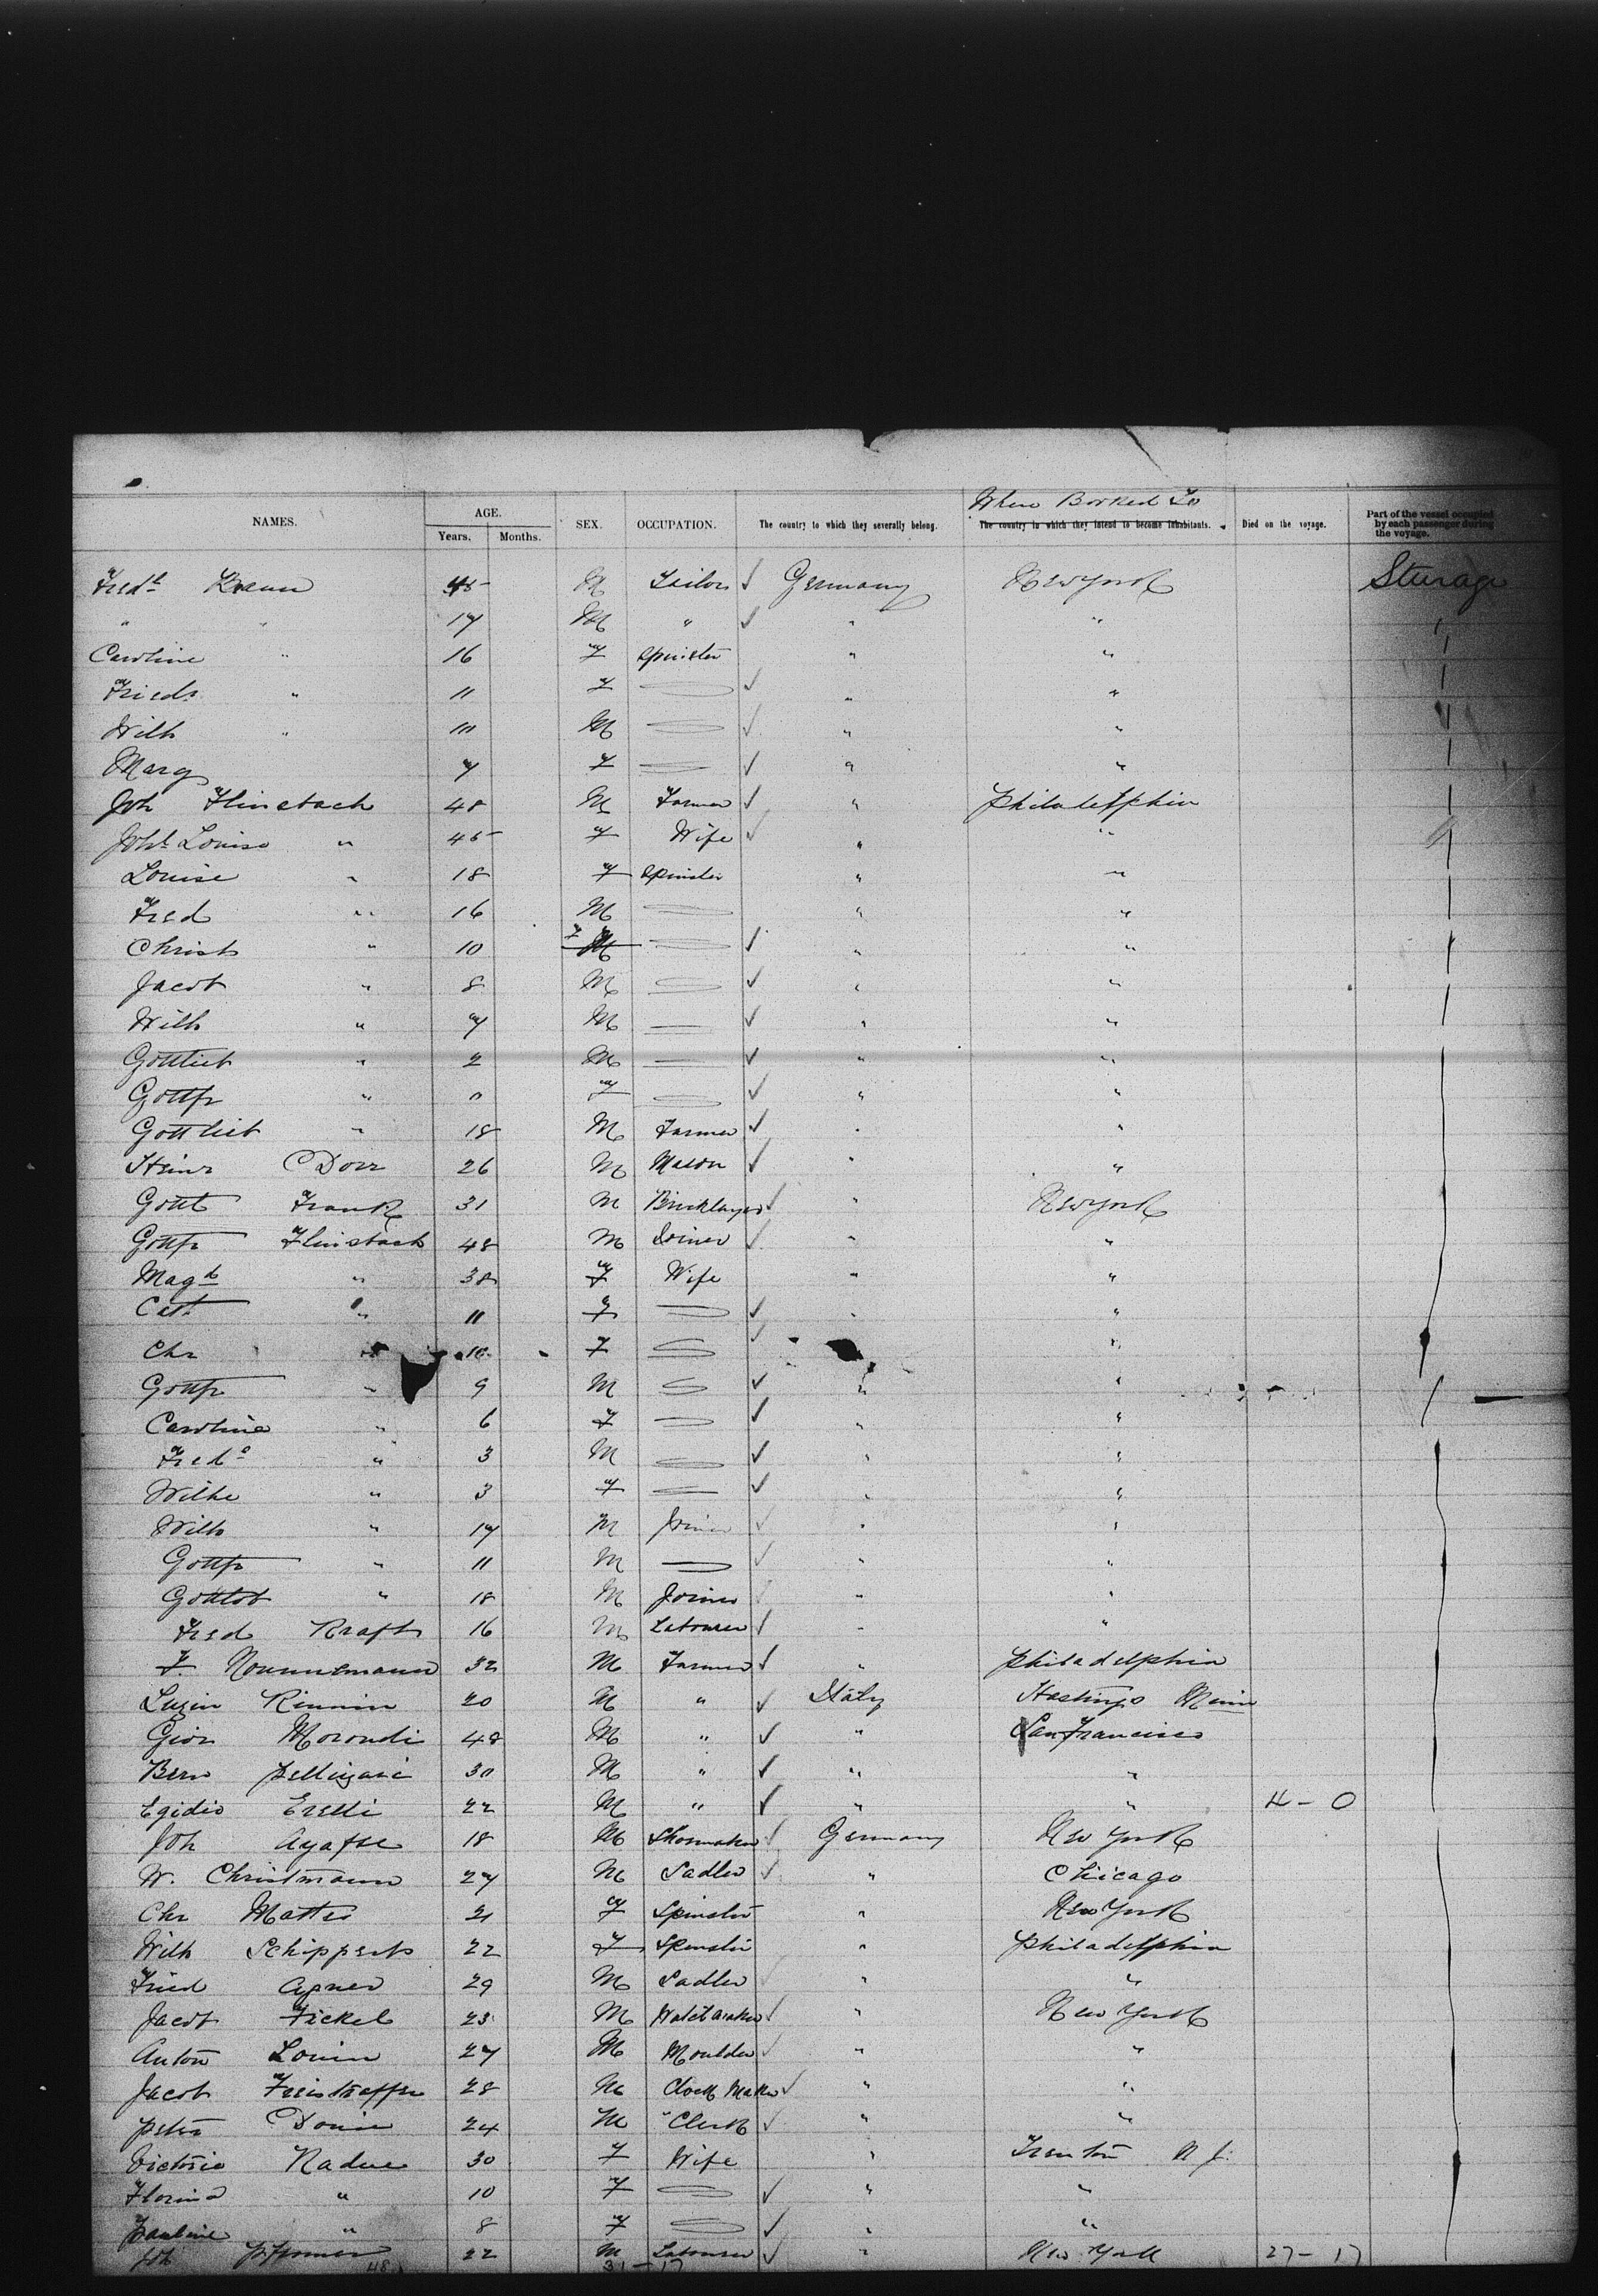 Where Booked To
NAMES. AGE. SEX. OCCUPATION. The country to which they severally belong. The country in which they intend to become inhabitants. Died on the voyage. Part of the vessel occupied by each passenger during the voyage.
Years. Months.
Fredk 45 M Tailor ✓ Germany New York Steerage
" " 17 M " ✓ " "
Caroline " 16 F Spinster " "
Friedr " 11 F — ✓ " "
Wilh " 10 M — ✓ " "
Marg 7 F — ✓ " "
Joh Flinsbach 48 M Farmer ✓ " Philadelphia
Louise " 45 F Wife ✓ " "
Louise " 18 F Spinster " "
Fred " 16 M — " "
Christ " 10 F M — ✓ " "
Jacob " 8 M — ✓ " "
Wilh " 7 M — ✓ " "
Gottlieb " 2 M — ✓ " "
Gottfr " F — ✓ " "
Gottlieb " 18 M Farmer ✓ " "
Heinr Dorr 26 M Mason ✓ " "
Gottl Frank 31 M Bricklayer ✓ " New York
Gottfr Flinsbach 48 M Joiner ✓ " "
Magd " 38 F Wife " "
Cath " 11 F — ✓ " "
Chr " 10 F — ✓ "
Gottfr " 9 M — ✓ " "
Caroline " 6 F — ✓ " "
Fred " 3 M — ✓ " "
Wilhe " 3 F — ✓ " "
Wilh " 17 M Joiner ✓ " "
Gottfr " 11 M — ✓ " "
Gottlob " 18 M Joiner ✓ " "
Fred Kraft 16 M Labourer ✓ " "
F. 32 M Farmer ✓ " Philadelphia
20 M " ✓ Italy Hastings Minn
Gior Morondi 48 M " ✓ " San Francisco
Bern 30 M " ✓ " "
Egidio Erelli 22 M " ✓ " " 4 - 0
Joh 18 M Shoemaker ✓ Germany New York
W. Christmann 27 M Sadler ✓ " Chicago
Chr Mattes 21 F Spinster " New York
Wilh Schippert 22 F Spinster " Philadelphia
Fried 29 M Sadler ✓ " "
Jacob Fickel 23 M Watchmaker ✓ " New York
Anton 27 M Moulder ✓ " "
Jacob 28 M Clock Maker ✓ " "
Peter 24 M Clerk ✓ " "
Victoria Radue 30 F Wife " Trenton N J.
Florina " 10 F — ✓ " "
Pauline " 8 F — ✓ " "
Joh 22 M Labourer ✓ " New York 27 - 17
48 31 - 17